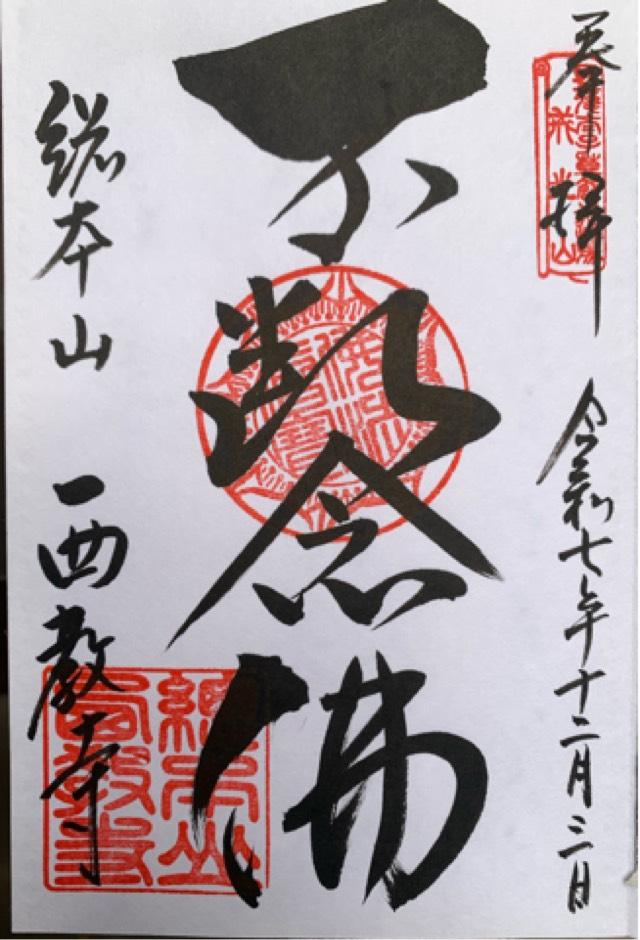 奉拝
令和七年十二月三日
不断念佛
総本山
西教寺
戒光山
總本山
西教寺